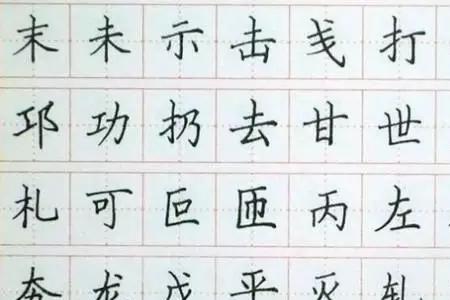 末未示击戋打
邛功扔去甘世
札可叵匝丙左
夯龙戊平灭轧